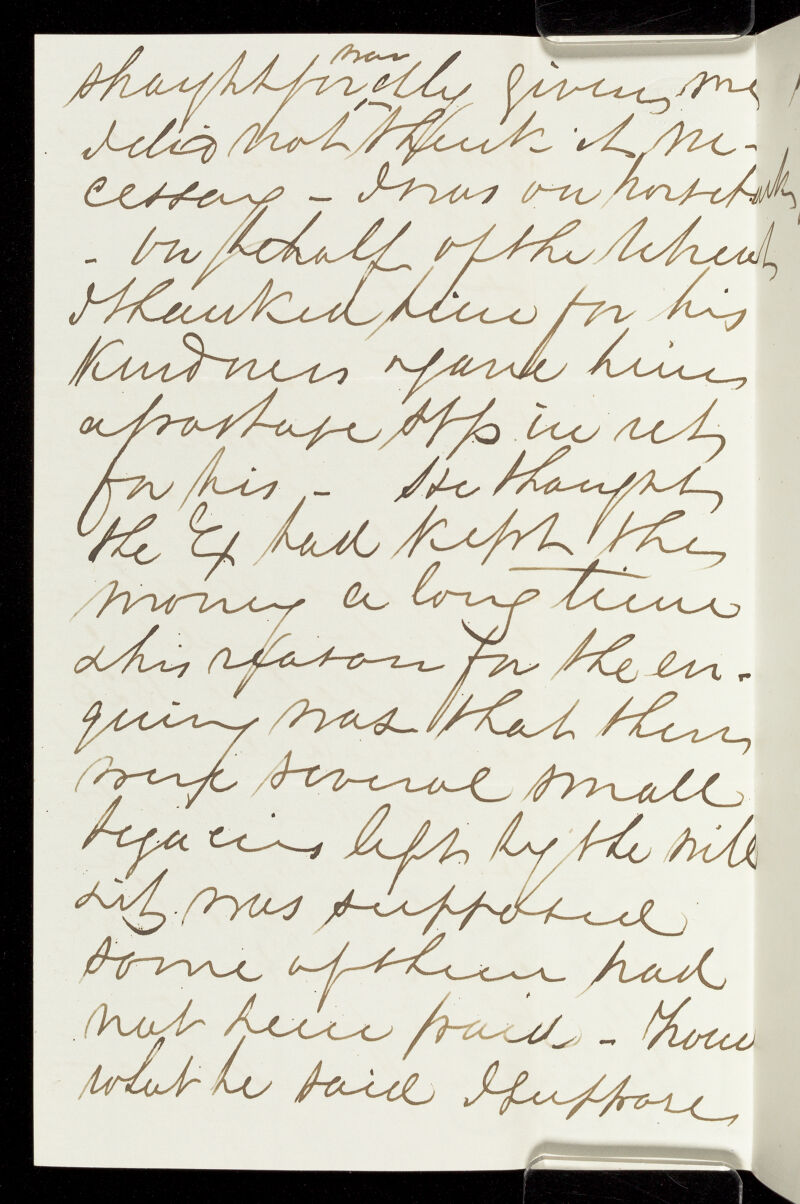 straightforwardly given me
I did not think it ne-
cessary – I was on horseback
– On behalf of the Retreat
I thanked him for his
kindness & gave him
a postage stp in ret
for his – He thought
the Ex had kept the
money a long time
& his reason for the en-
quiry was that there
were several small
legacies left by the will
& it was supposed
some of them had
not been paid – From
what he said I suppose